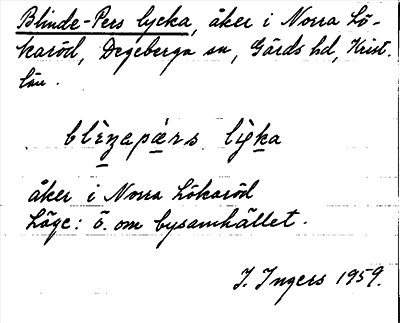 Blinde-Pers lycka, åker i Norra Lö-
karöd, Degeberga sn, Gärds hd, Krist.
län.
blìnapærs lyka
åker i Norra Lökaröd
Läge: ö. om bysamhället.
I. Ingers 1959.